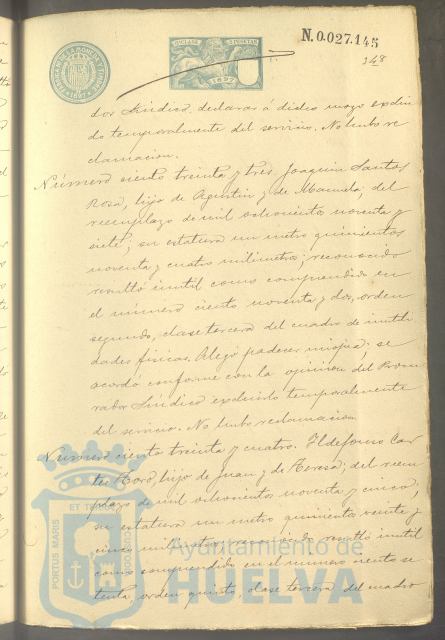 N.0.027.145
11ª CLASE 2 PESETAS
1897
348
dor Síndico, declarar á dicho mozo exclui
do temporalmente del servicio. No hubo re
clamacion.
Número ciento treinta y tres. Joaquin Santos
Rosa, hijo de Agustin y de Manuela, del
reemplazo de mil ochocientos noventa y
siete; su estatura un metro quinientos
noventa y cuatro milimetros; reconocido
resultó inutil como comprendido en
el número ciento noventa y dos, orden
segundo, clase tercera del cuadro de inutili
dades fisicas. Alegó padecer miopia; se
acordó conforme con la opinion del Procu
rador Síndico excluirlo temporalmente
del servicio. No hubo reclamacion.
Número ciento treinta y cuatro. Ildefonso
Toro, hijo de Juan y de Teresa; del reem
plazo de mil ochocientos noventa y cinco;
su estatura un metro quinientos veinte y
cinco milimetros; reconocido resultó inutil
como comprendido en el número ciento se
tenta, orden quinto, clase tercera del cuadro
PORTUS MARIS ET TERRE CUSTODIA
Ayuntamiento de
HUELVA